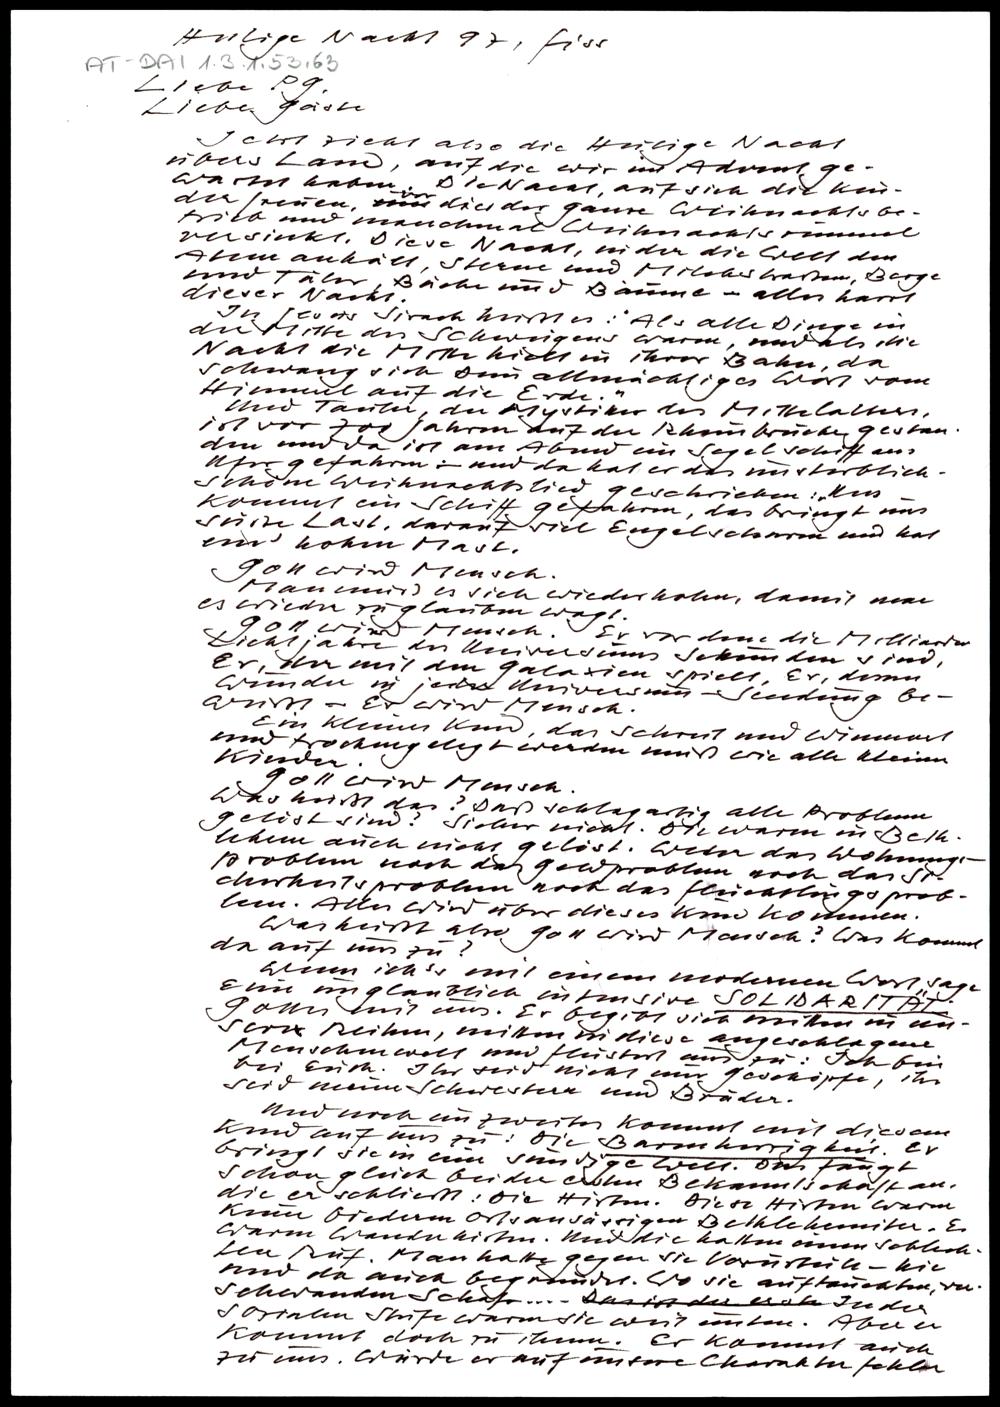 Heilige Nacht 97, Fiss
AT-DAI 1.3.1.53.63
Liebe Pg.
Liebe Gäste
Jetzt zieht also die Heilige Nacht
übers Land, auf die wir im Advent ge-
wartet haben. Die Nacht, auf sich die Kin-
der freuen, in dies der ganze Weihnachtsbe-
trieb und manchmal Weihnachtsrummel
versinkt. Diese Nacht, in der die Welt den
Atem anhält, Sterne und Milchstrassen, Berge
und Täler, Bäche und Bäume – alles harrt
dieser Nacht.
In Jesus Sirach heisst es: "Als alle Dinge in
der Mitte des Schweigens waren, und als die
Nacht die Mitte hielt in ihrer Bahn, da
schwang sich Dein allmächtiges Wort vom
Himmel auf die Erde."
Und Tauler, der Mystiker des Mittelalters,
ist vor 700 Jahren auf der Rheinbrücke gestan-
den und da ist am Abend ein Segelschiff ans
Ufer gefahren – und da hat er das unsterblich-
schöne Weihnachtslied geschrieben: "Uns
kommt ein Schiff gefahren, das bringt uns
süsse Last, darauf viel Engelscharen und hat
ein' hohen Mast.
Gott wird Mensch.
Man muß es sich wiederholen, damit man
es wieder zu glauben wagt.
Gott wird Mensch. Er vor dem die Milliarden
Lichtjahre des Universums Sekunden sind,
Er, der mit den Galaxien spielt, Er, dessen
Wunder in jeder Universum-Sendung be-
greift – Er wird Mensch.
Ein kleines Kind, das schreit und wimmert
und trockengelegt werden muß wie alle kleinen
Kinder.
Gott wird Mensch.
Was heißt das? Daß schlagartig alle Probleme
gelöst sind? Sicher nicht. Die waren in Beth-
lehem auch nicht gelöst. Weder das Wohnungs-
problem noch das Geldproblem noch das Si-
cherheitsproblem noch das Flüchtlingsprob-
lem. Alles wird über dieses Kind kommen.
Was heißt also Gott wird Mensch? Was kommt
da auf uns zu?
Wenn ich's mit einem modernen Wort sage
Eine unglaublich intensive SOLIDARITÄT
Gottes mit uns. Er begibt sich mitten in un-
sere Reihen, mitten in diese angeschlagene
Menschenwelt und flüstert uns zu: Ich bin
bei Euch. Ihr seid nicht nur Geschöpfe, ihr
seid meine Schwestern und Brüder.
Und noch ein zweites kommt mit diesem
Kind auf uns zu: Die Barmherzigkeit. Er
bringt sie in eine sündige Welt. Das fängt
schon gleich bei der ersten Bekanntschaft an,
die er schließt: Die Hirten. Diese Hirten waren
keine biederen ortsansässigen Bethlehemiten. Es
waren Wanderhirten. Und die hatten einen schlech-
ten Ruf. Man hatte gegen sie Vorurteile – hie
und da auch begründet. Wo sie auftauchten, ver-
schwanden Schafe.... Das ist der erste In der
sozialen Stufe waren sie weit unten. Aber er
kommt doch zu ihnen. Er kommt auch
zu uns. Würde er auf unsere Charakterfehler